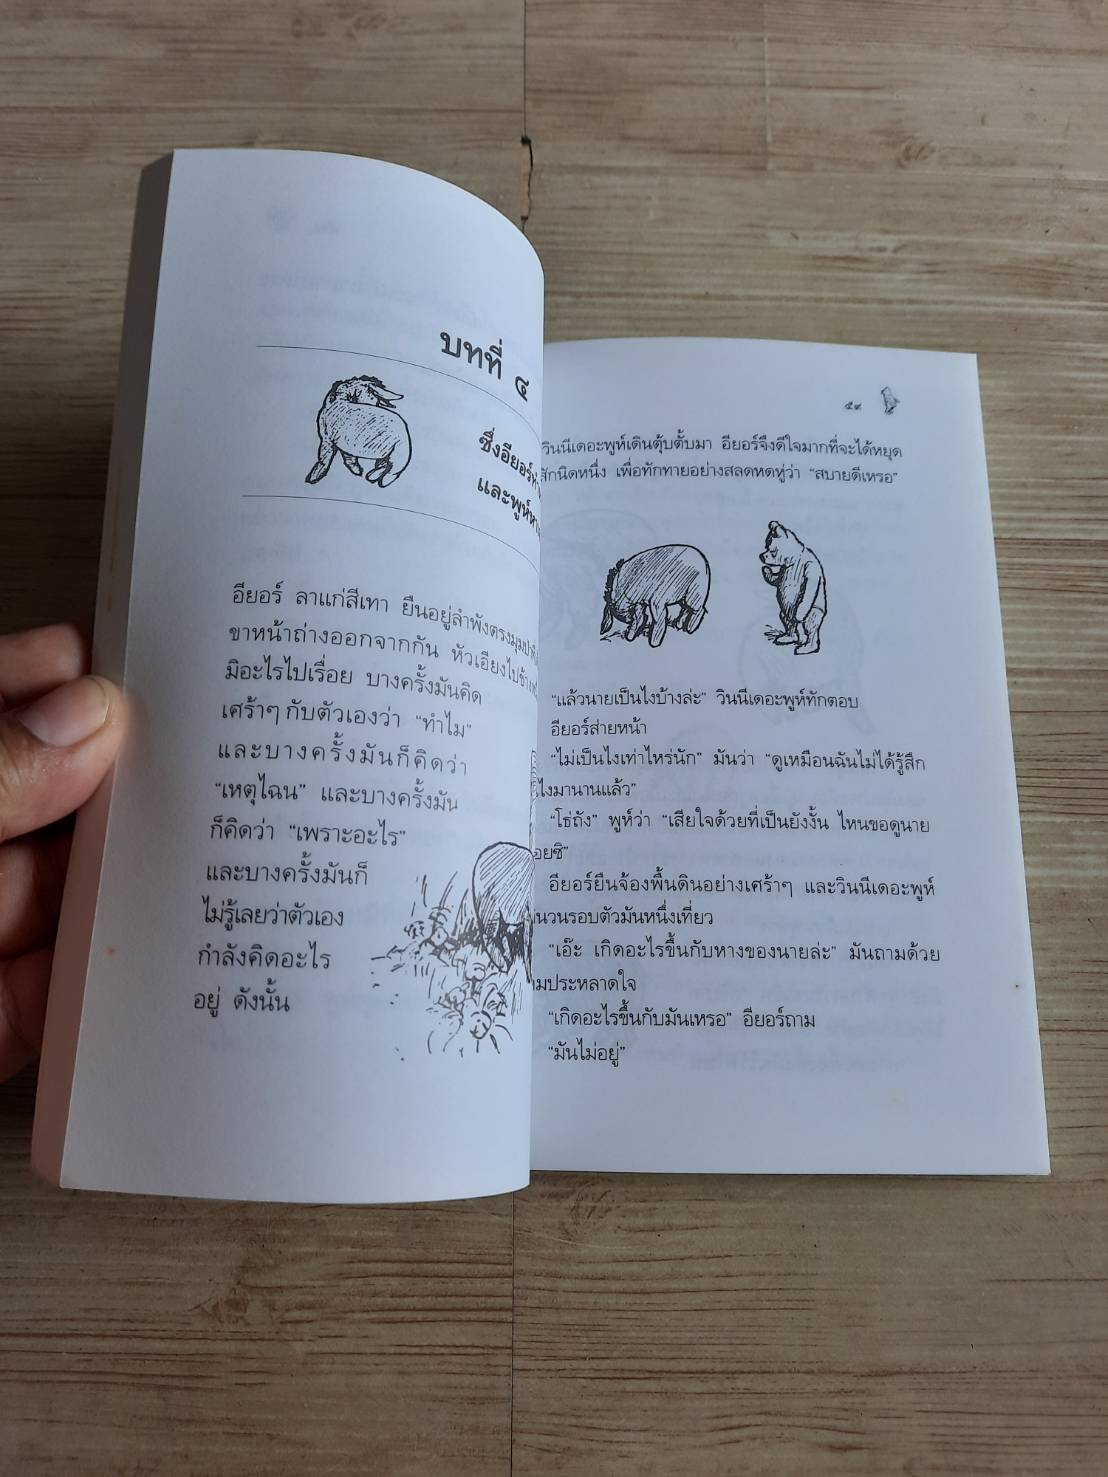 บทที่ ๔
ซึ่งอียอร์
และพูห์
อียอร์ ลาแก่สีเทา ยืนอยู่ลำพังตรงมุมป่า
ขาหน้าถ่างออกจากกัน หัวเอียงไปข้าง
มิอะไรไปเรื่อย บางครั้งมันคิด
เศร้าๆ กับตัวเองว่า “ทำไม”
และบางครั้งมันก็คิดว่า
“เหตุไฉน” และบางครั้งมัน
ก็คิดว่า “เพราะอะไร”
และบางครั้งมันก็
ไม่รู้เลยว่าตัวเอง
กำลังคิดอะไร
อยู่ ดังนั้น
๕๙
วินนีเดอะพูห์เดินตุ้บตั้บมา อียอร์จึงดีใจมากที่จะได้หยุด
สักนิดหนึ่ง เพื่อทักทายอย่างสลดหดหู่ว่า “สบายดีเหรอ”
“แล้วนายเป็นไงบ้างล่ะ” วินนีเดอะพูห์ทักตอบ
อียอร์ส่ายหน้า
“ไม่เป็นไงเท่าไหร่นัก” มันว่า “ดูเหมือนฉันไม่ได้รู้สึก
ไงมานานแล้ว”
“โธ่ถัง” พูห์ว่า “เสียใจด้วยที่เป็นยังงั้น ไหนขอดูนาย
อียอร์ยืนจ้องพื้นดินอย่างเศร้าๆ และวินนีเดอะพูห์
วนรอบตัวมันหนึ่งเที่ยว
“เอ๊ะ เกิดอะไรขึ้นกับหางของนายล่ะ” มันถามด้วย
ประหลาดใจ
“เกิดอะไรขึ้นกับมันเหรอ” อียอร์ถาม
“มันไม่อยู่”